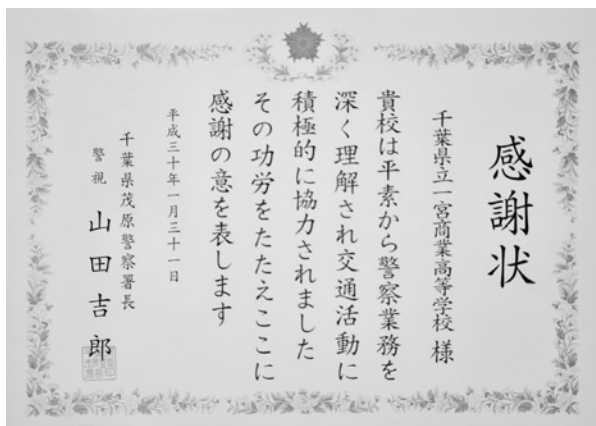 感謝状
千葉県立一宮商業高等学校 様
貴校は平素から警察業務を
深く理解され交通活動に
積極的に協力されました
その功労をたたえここに
感謝の意を表します
平成三十年一月三十一日
千葉県茂原警察署長
警視 山田吉郎